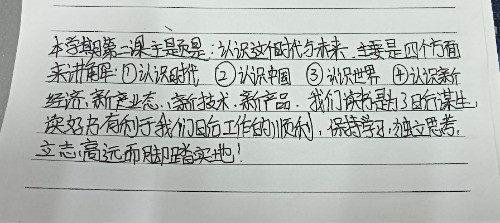 本学期第一课主题是：认识这个时代与未来，主要是四个方面
来讲解：①认识时代 ②认识中国 ③认识世界 ④认识新
经济、新产业态、新技术、新产品。我们读书是为了日后谋生，
读好书有利于我们日后工作的顺利，保持学习，独立思考，
立志高远而脚踏实地！